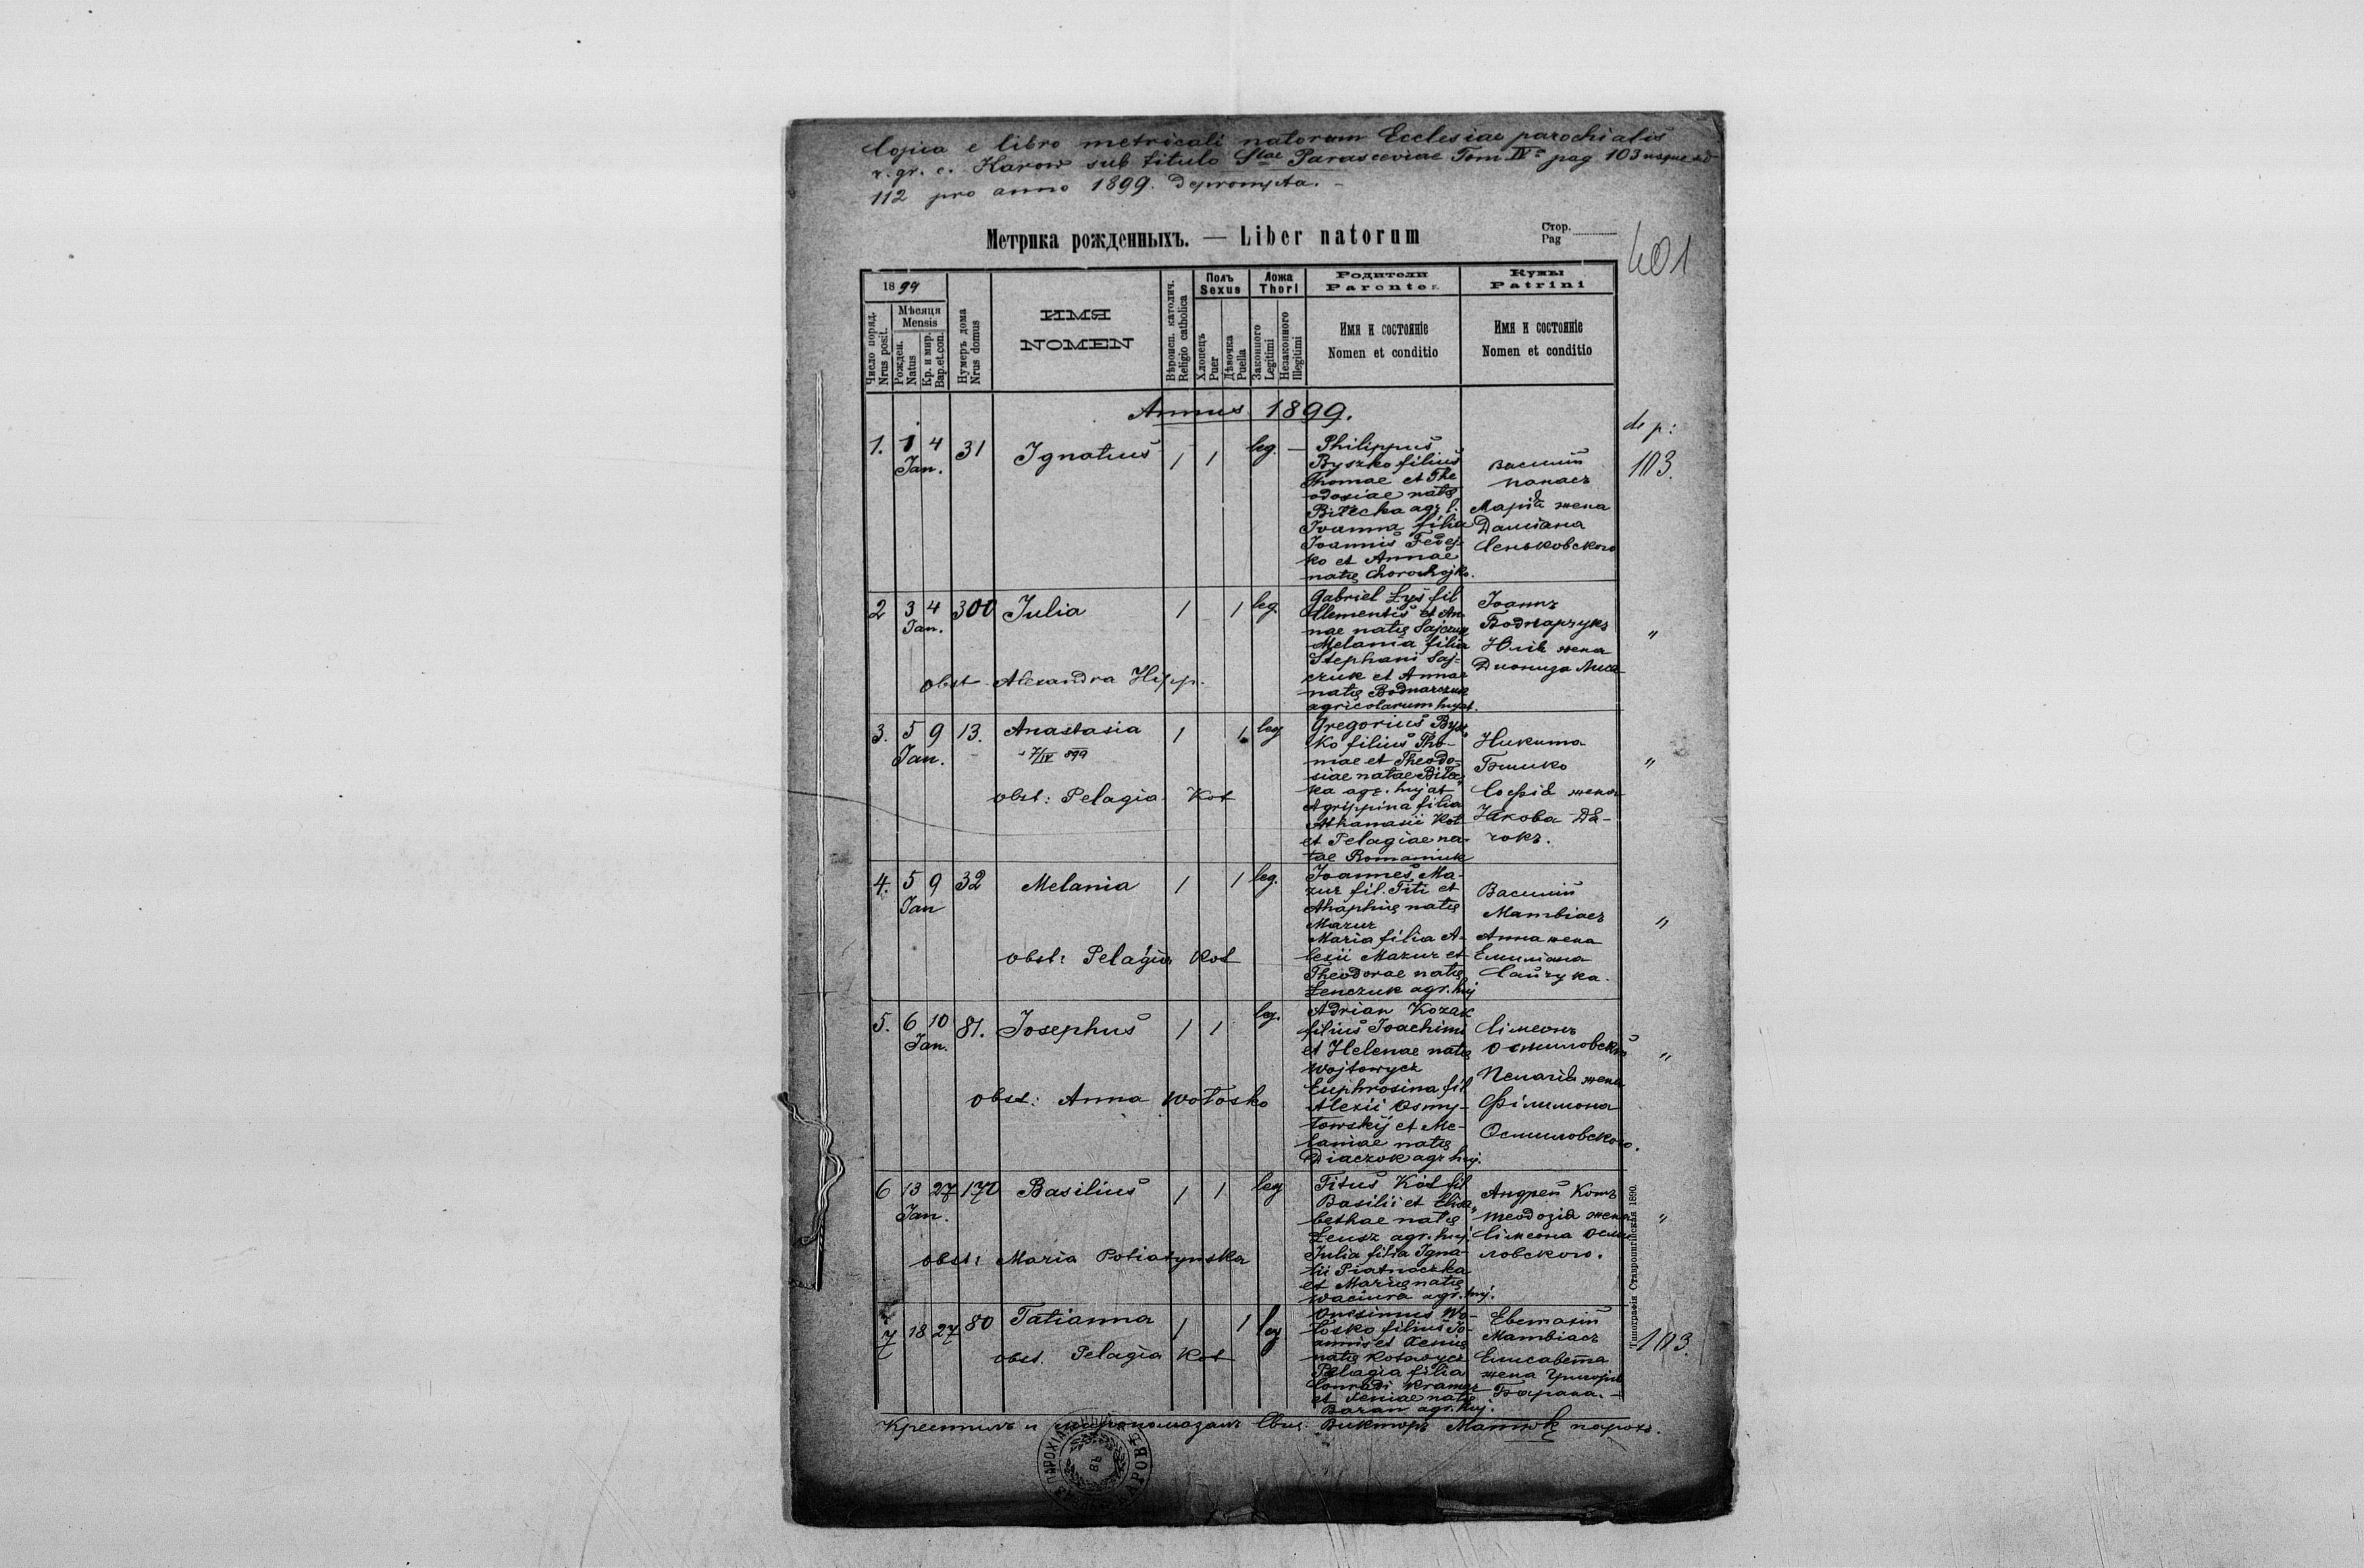 Copia e libro metricali natorum Ecclesiae parochialis
r. gr. c. Karow sub titulo Stae Parasceviae Tom IV pag 103 usque ad
112 pro anno 1899. deprompta. -
Метрика рожденныхъ. — Liber natorum
Стор.
Pag
401
1899
Число поряд.
Nrus posit.
Мѣсяця
Mensis
Рожден.
Natus
Кр. и мир.
Bap. et con.
Нумеръ дома
Nrus domus
ИМЯ
NOMEN
Вѣроисп. католич.
Religio catholica
Полъ
Sexus
Хлопецъ
Puer
Дѣвочка
Puella
Ложа
Thori
Законного
Legitimi
Незаконного
Illegitimi
Родители
Parentes
Имя и состоянїе
Nomen et conditio
Кумы
Patrini
Имя и состоянїе
Nomen et conditio
Annus 1899.
1. 1 4 31 Ignatius 1 1 leg. —
Jan.
Philippus
Byszko filius
Thomae et The
odosiae natę
Bilecka agr.
Ivanna filia
Joannis Fedej-
ko et Annae
natę Chorochojko.
Василій
Панасъ
Марія жена
Даміана
Сеньковского
de p:
103.
2 3 4 300 Julia 1 1 leg.
Jan.
obst. Alexandra Hipp.
Gabriel Łys fil
Clementis et An-
nae natę Sajczuk
Melania filia
Stephani Saj-
czuk et Annae
natę Bodnarczuk
agricolarum hujat.
Іоаннъ
Боднарчукъ
Юлія жена
Диониза Лиса
"
3. 5 9 13. Anastasia 1 1 leg
Jan.
7/IV 899
obst: Pelagia Kot
Gregorius Bysz-
ko filius Tho-
mae et Theodo-
siae natae Bilec-
ka agr. hujat
Agrippina filia
Athanasii Kot
et Pelagiae na-
tae Romaniuk
Никита
Бышко
Софія жена
Якова Дя-
чокъ.
"
4. 5 9 32 Melania 1 1 leg.
Jan
obst: Pelagia Kot
Joannes Ma-
zur fil. Titi et
Ahaphię natę
Mazur
Maria filia A-
lexii Mazur et
Theodorae natę
Łenczuk agr. huj
Василій
Матвіасъ
Анна жена
Емиліана
Сайчука.
"
5. 6 10 81. Josephus 1 1 leg.
Jan.
obst: Anna Wołosko
Adrian Kozak
filius Joachimi
et Helenae natę
Wojtowycz
Euphrosina fil
Alexii Osmy-
łowskij et Me-
laniae natę
Diaczok agr huj.
Сімеонъ
Осмиловскій
Пелагія жена
Філимона
Осмиловского.
"
6 13 27 170 Basilius 1 1 leg
Jan.
obst: Maria Potiatynska
Titus Kot fil
Basilii et Elisa-
bethae natę
Łeusz agr. huj.
Julia filia Igna-
tii Piatnoczka
et Marię natę
Waciura agr. huj.
Андрей Котъ
Теодозія жена
Сімеона Осми
ловского.
"
7 18 27 80 Tatianna 1 1 leg
obst. Pelagia Kot
Onesimus Wo-
łosko filius Jo-
annis et Xenię
natę Kotowycz
Pelagia filia
Conradi Kramar
et Xeniae natę
Baran agr. huj.
Евстахій
Матвіасъ
Елисавета
жена Григорія
Барана. -
103.
Крестилъ и миропомазалъ Свщ. Викторъ Матюкъ парохъ.
Типографія Ставропигійская 1890.